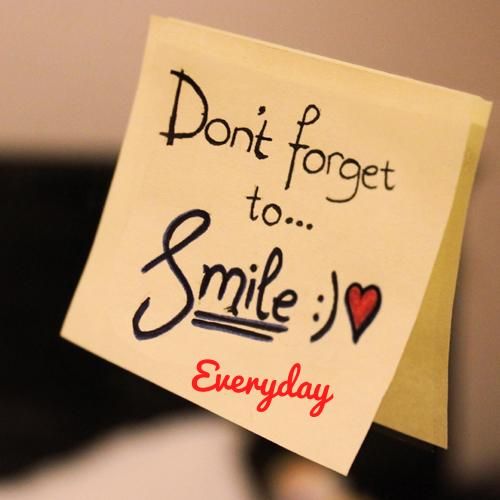 Don't forget
to...
Smile :)
Everyday